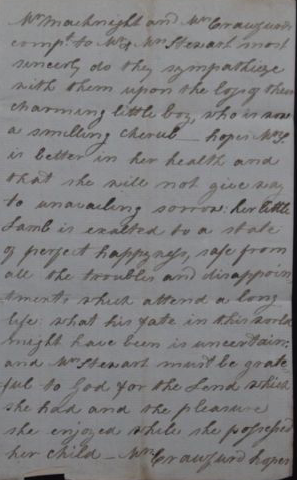 Mr Macknight and Mrs Crawfurds
compts to Mr & Mrs Stewart most
sincerly do they sympathieze
with them upon the loss of their
charming little boy, who is now
a smilling cherub — hopes Mrs S.
is better in her health and
that she will not give way
to unavailing sorrow: her little
Lamb is exalted to a state
of perfect happyness, safe from
all the troubles and disappoin
tments which attend a long
life: what his fate in this world
might have been is uncertain;
and Mrs Stewart must be grate
ful to God for the which
she had and the pleasure
she enjoyed while she possessed
her child — Mrs Crawfurd hopes